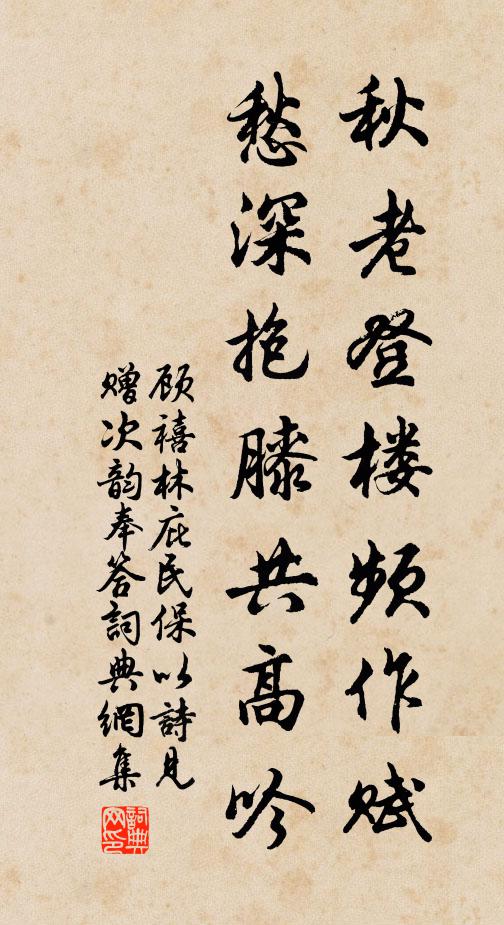 秋老登楼频作赋
愁深抱膝共高吟
顾禧林庇民保以詩見
赠次韵奉答詞典網集
詞典
网印